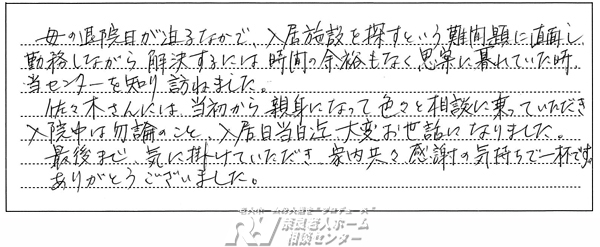 母の退院日が迫るなかで、入居施設を探すという難問題に直面し
勤務しながら解決するには時間の余裕もなく思案に暮れていた時
当センターを知り訪ねました。
佐々木さんには、当初から親身になって色々と相談に乗っていただき
入院中は勿論のこと、入居日当日迄大変お世話になりました。
最後まで気に掛けていただき家内共々感謝の気持ちで一杯です。
ありがとうございました。
奈良老人ホーム
相談センター